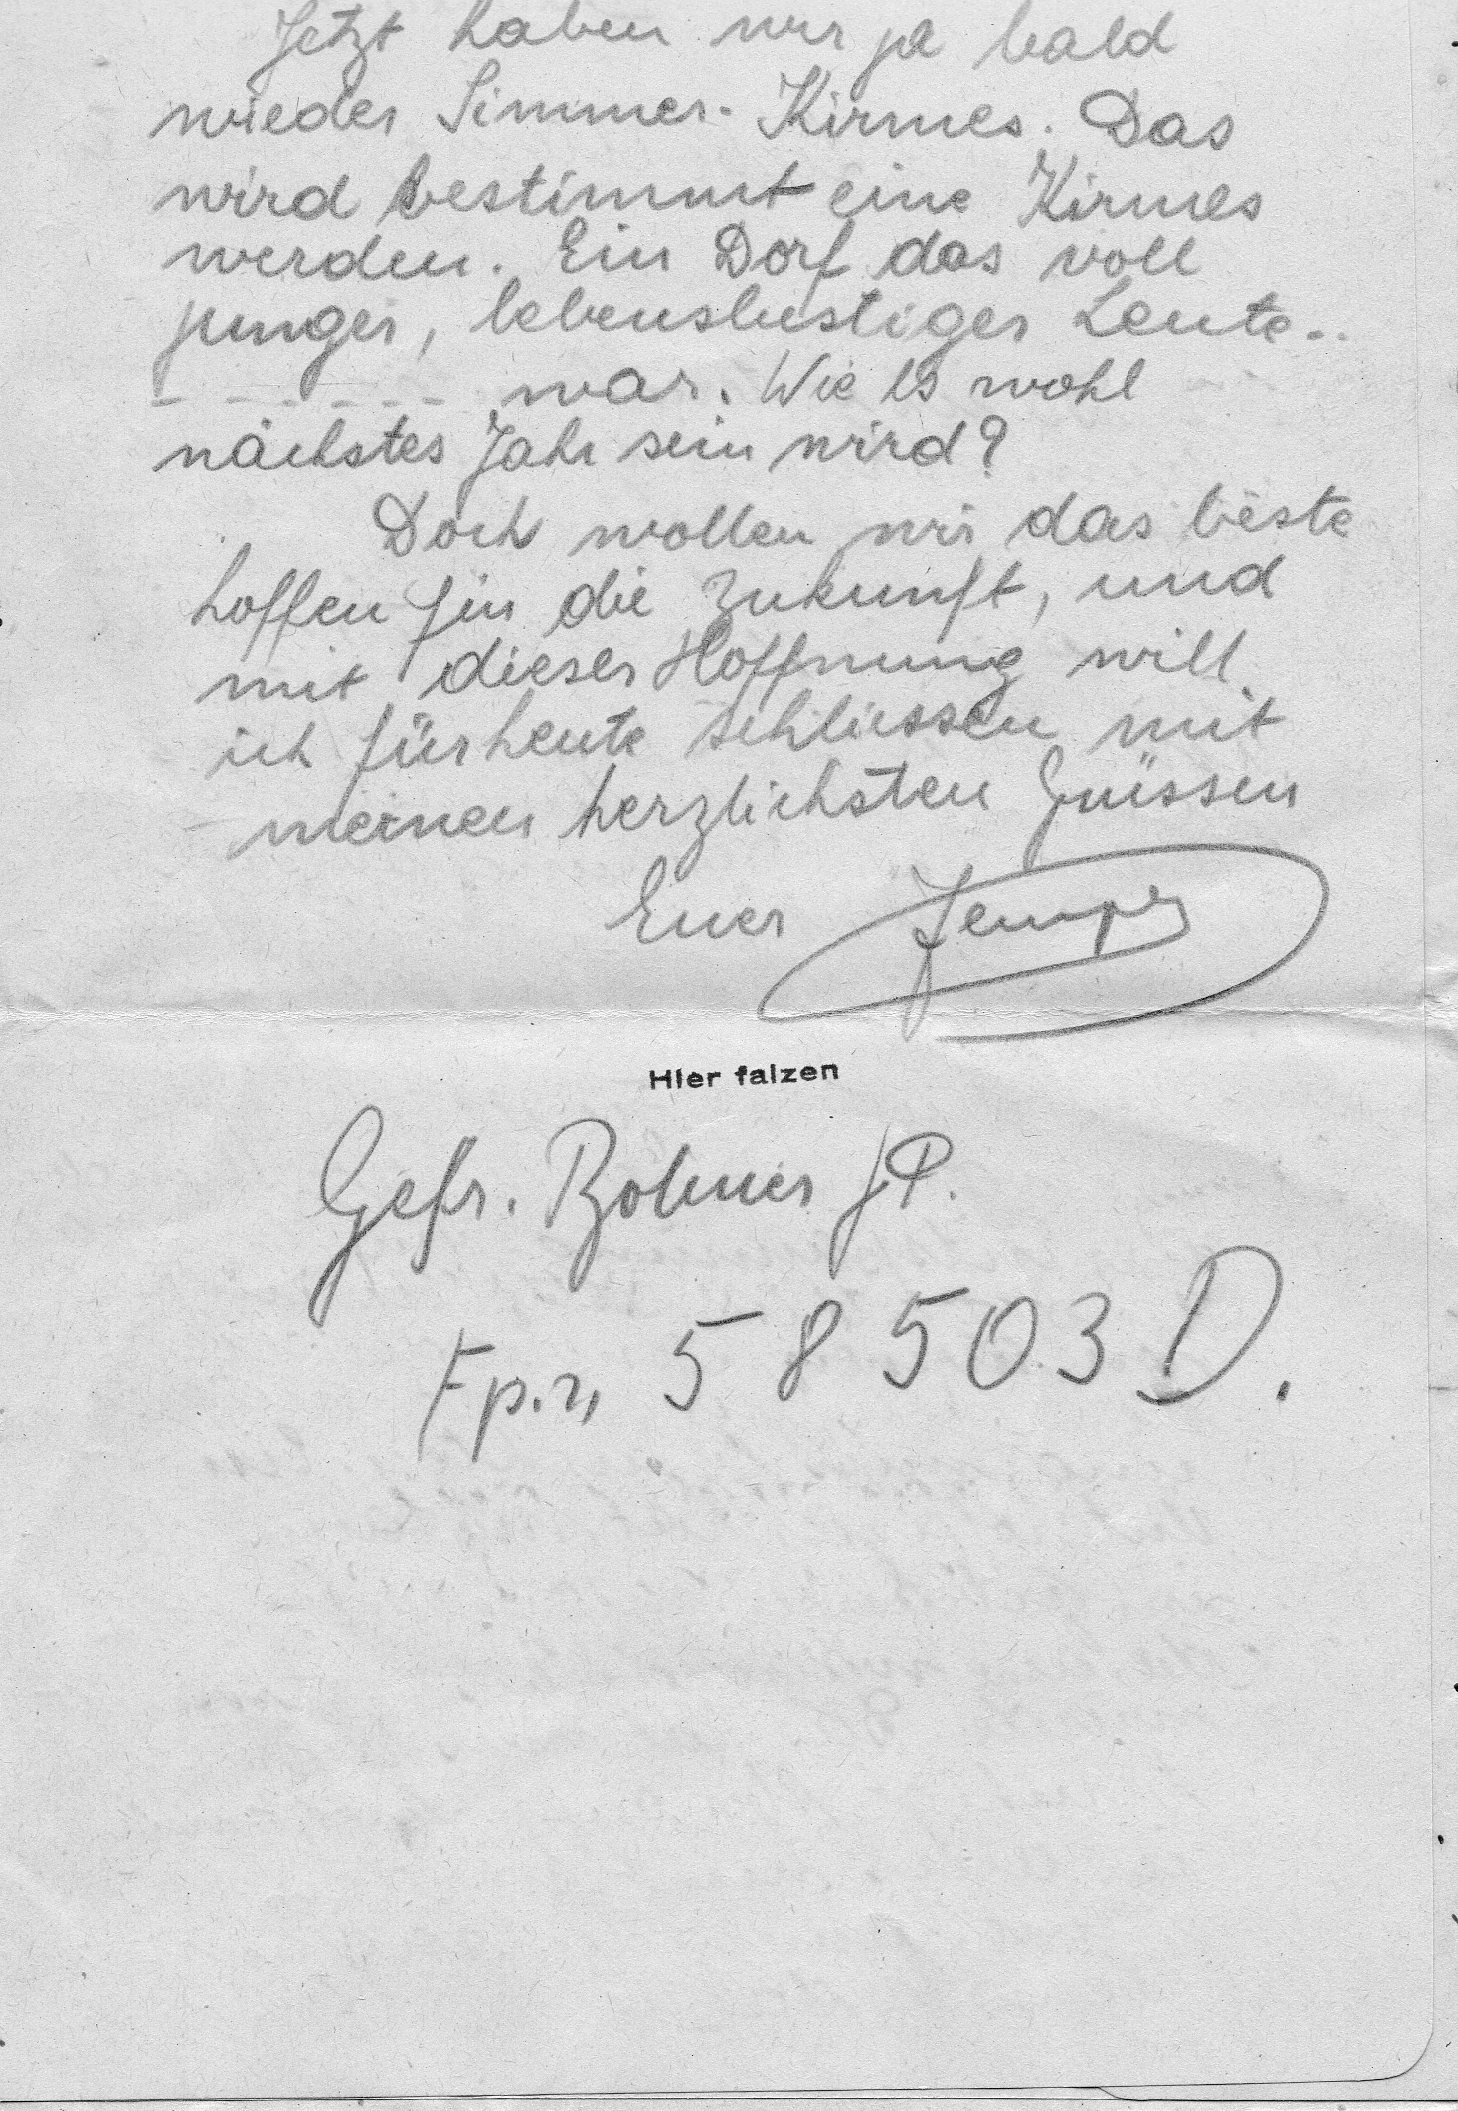 Jetzt haben wir ja bald
wieder Simmer-Kirmes. Das
wird bestimmt eine Kirmes
werden. Ein Dorf das voll
junger, lebenslustiger Leute..
- - - - - - - war. Wie es wohl
nächstes Jahr sein wird?
Doch wollen wir das beste
hoffen für die Zukunft, und
mit dieser Hoffnung will
ich für heute schliessen mit
meinen herzlichsten Grüssen
Euer Jempy
Hier falzen
Gefr. Bohmer JP.
Fp.n, 58503 D.